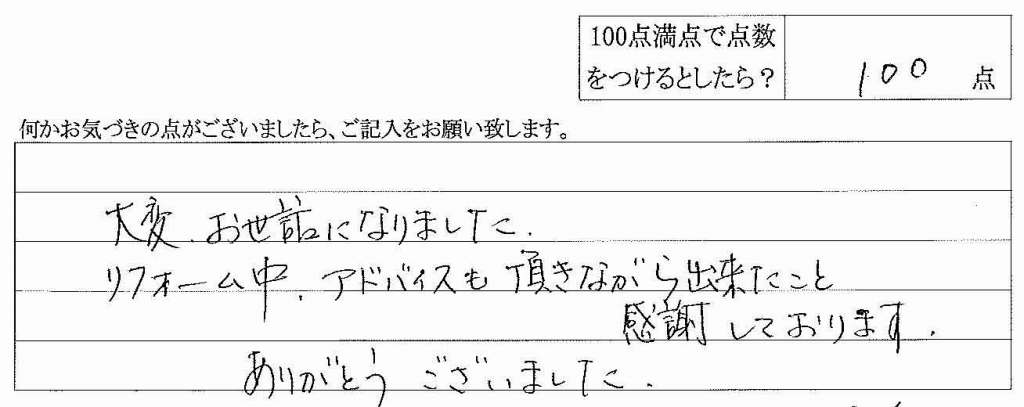 100点満点で点数
をつけるとしたら？
100 点
何かお気づきの点がございましたら、ご記入をお願い致します。
大変、お世話になりました.
リフォーム中、アドバイスも頂きながら出来たこと
感謝しております.
ありがとうございました.